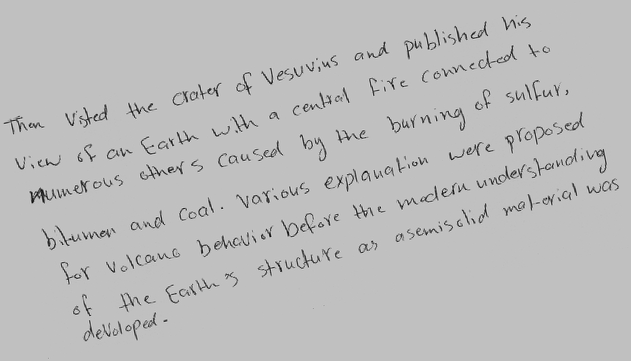 Then Visted the crater of Vesuvius and published his
view of an Earth with a central fire connected to
numerous others caused by the burning of sulfur,
bitumen and coal. Various explanation were proposed
for volcano behavior before the modern understanding
of the Earth's structure as a semisolid material was
devoloped.